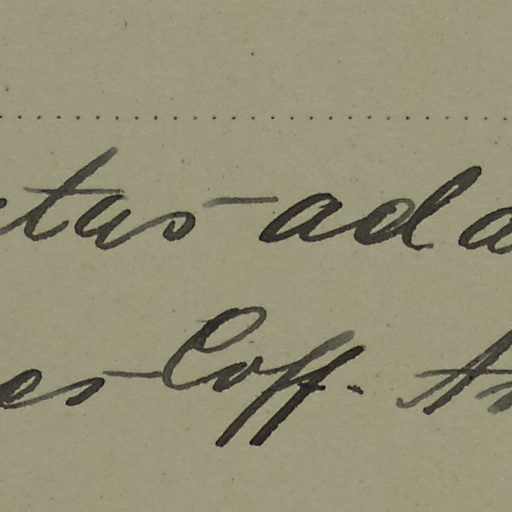 ctus ad a
es Coff. An